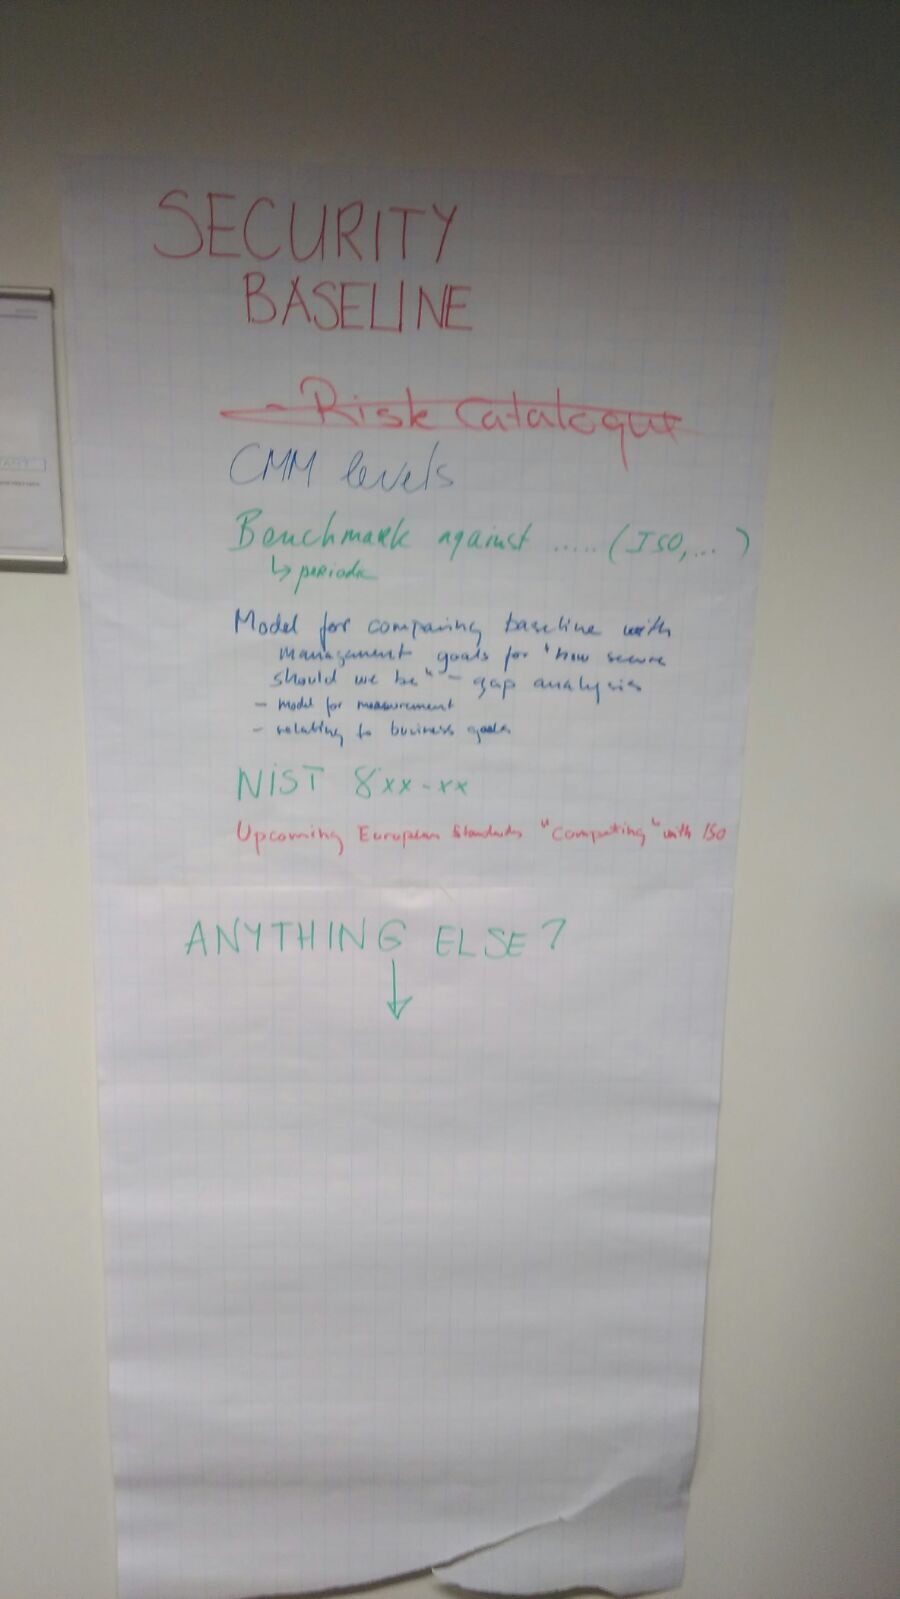 SECURITY
BASELINE
- Risk Catalogue
CMM levels
Benchmark against ..... (ISO,... )
↳ periodic
Model for comparing baseline with
management goals for "how secure
should we be" - gap analysis
- model for measurement
- relating to business goals
NIST 8xx-xx
Upcoming European Standards "Competing" with ISO
ANYTHING ELSE?
↓